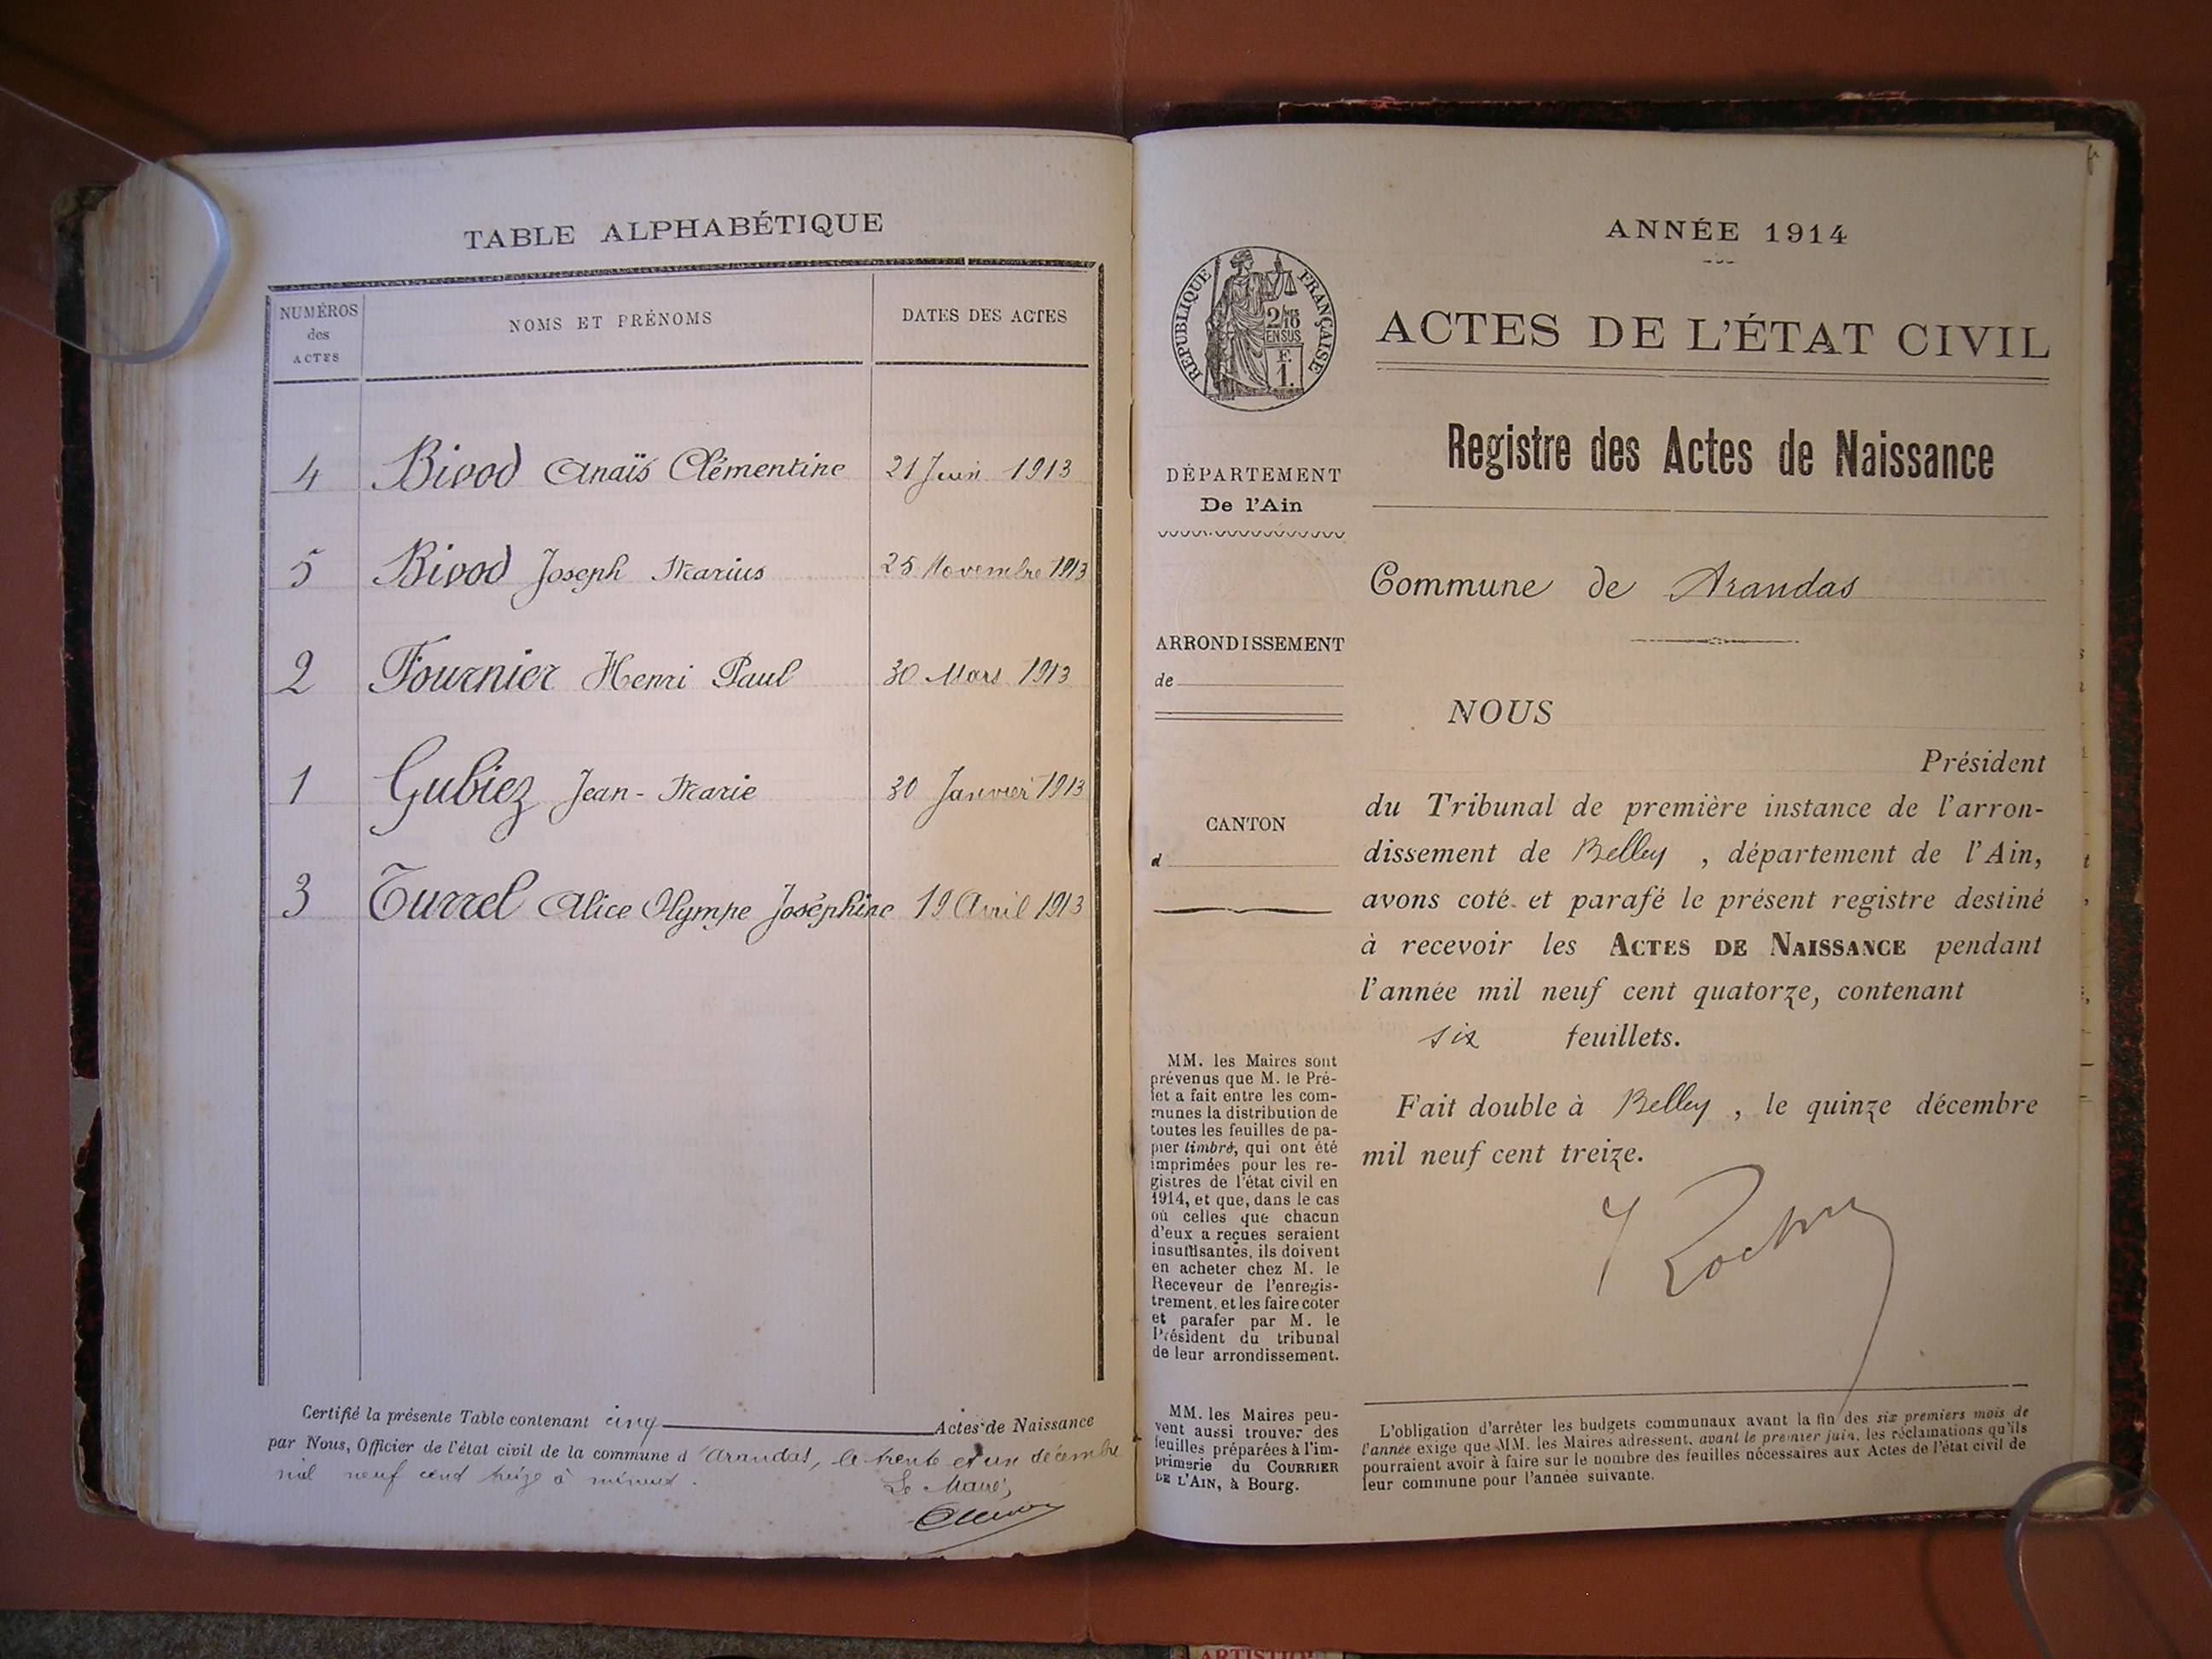 TABLE ALPHABÉTIQUE
NUMÉROS
des
ACTES
NOMS ET PRÉNOMS
DATES DES ACTES
4 Bivod Anaïs Clémentine 21 Juin 1913
5 Bivod Joseph Marius 25 Novembre 1913
2 Fournier Henri Paul 30 Mars 1913
1 Gubiez Jean-Marie 30 Janvier 1913
3 Turrel Alice Olympe Joséphine 19 Avril 1913
Certifié la présente Table contenant cinq Actes de Naissance
par Nous, Officier de l'état civil de la commune d'Arandas, le trente et un décembre
mil neuf cent treize à minuit.
Le Maire,
ANNÉE 1914
RÉPUBLIQUE FRANÇAISE
2/10
EN SUS
F.
1.
ACTES DE L'ÉTAT CIVIL
Registre des Actes de Naissance
DÉPARTEMENT
De l'Ain
Commune de Arandas
ARRONDISSEMENT
de
CANTON
d
NOUS
Président
du Tribunal de première instance de l'arron-
dissement de Belley, département de l'Ain,
avons coté et parafé le présent registre destiné
à recevoir les ACTES DE NAISSANCE pendant
l'année mil neuf cent quatorze, contenant
six feuillets.
Fait double à Belley, le quinze décembre
mil neuf cent treize.
MM. les Maires sont
prévenus que M. le Pré-
fet a fait entre les com-
munes la distribution de
toutes les feuilles de pa-
pier timbré, qui ont été
imprimées pour les re-
gistres de l'état civil en
1914, et que, dans le cas
où celles que chacun
d'eux a reçues seraient
insuffisantes, ils doivent
en acheter chez M. le
Receveur de l'enregis-
trement, et les faire coter
et parafer par M. le
Président du tribunal
de leur arrondissement.
MM. les Maires peu-
vent aussi trouver des
feuilles préparées à l'im-
primerie du COURRIER
DE L'AIN, à Bourg.
L'obligation d'arrêter les budgets communaux avant la fin des six premiers mois de
l'année exige que MM. les Maires adressent, avant le premier juin, les réclamations qu'ils
pourraient avoir à faire sur le nombre des feuilles nécessaires aux Actes de l'état civil de
leur commune pour l'année suivante.